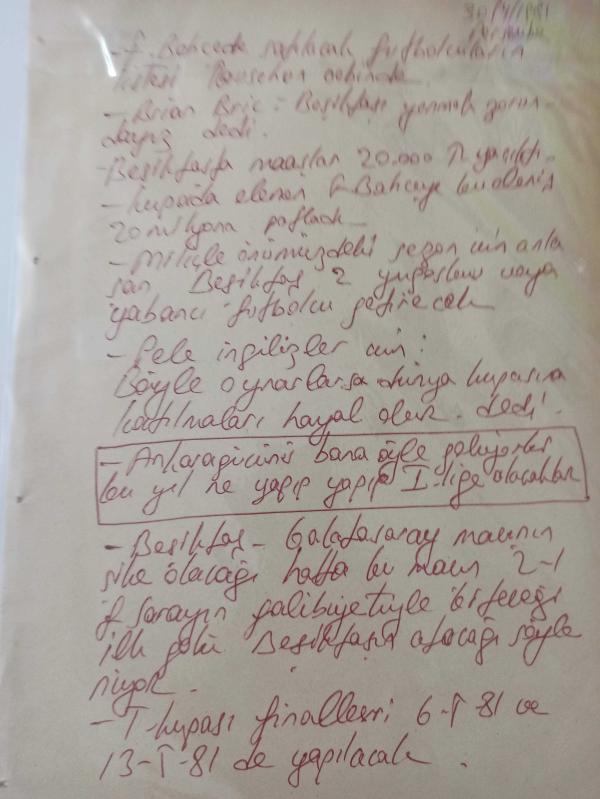 30/4/1981
- F. Bahçede satılacak futbolcuların
listesi Rauschen cebinde.
- Brian Birc: Beşiktaşı yenmek zorun-
dayız dedi.
- Beşiktaşta maaştan 20.000 TL
- Kupada elenen F. Bahçeye bu
20 milyona patladı.
önümüzdeki sezon için anla
şan Beşiktaş 2 yugoslav veya
yabancı futbolcu getirecek
- Pele ingilizler için:
Böyle oynarlarsa dünya kupasına
katılmaları hayal olur. dedi.
- Ankaragücünü bana öyle geliyorki
bu yıl ne yapıp yapıp I. lige alacaklar
- Beşiktaş - Galatasaray maçının
şike olacağı hatta bu maçın 2-1
G. sarayın galibiyetiyle biteceği
ilk golü Beşiktaşın atacağı söyle
niyor.
- T. kupası finalleri 6-5-81 ve
13-5-81 de yapılacak.